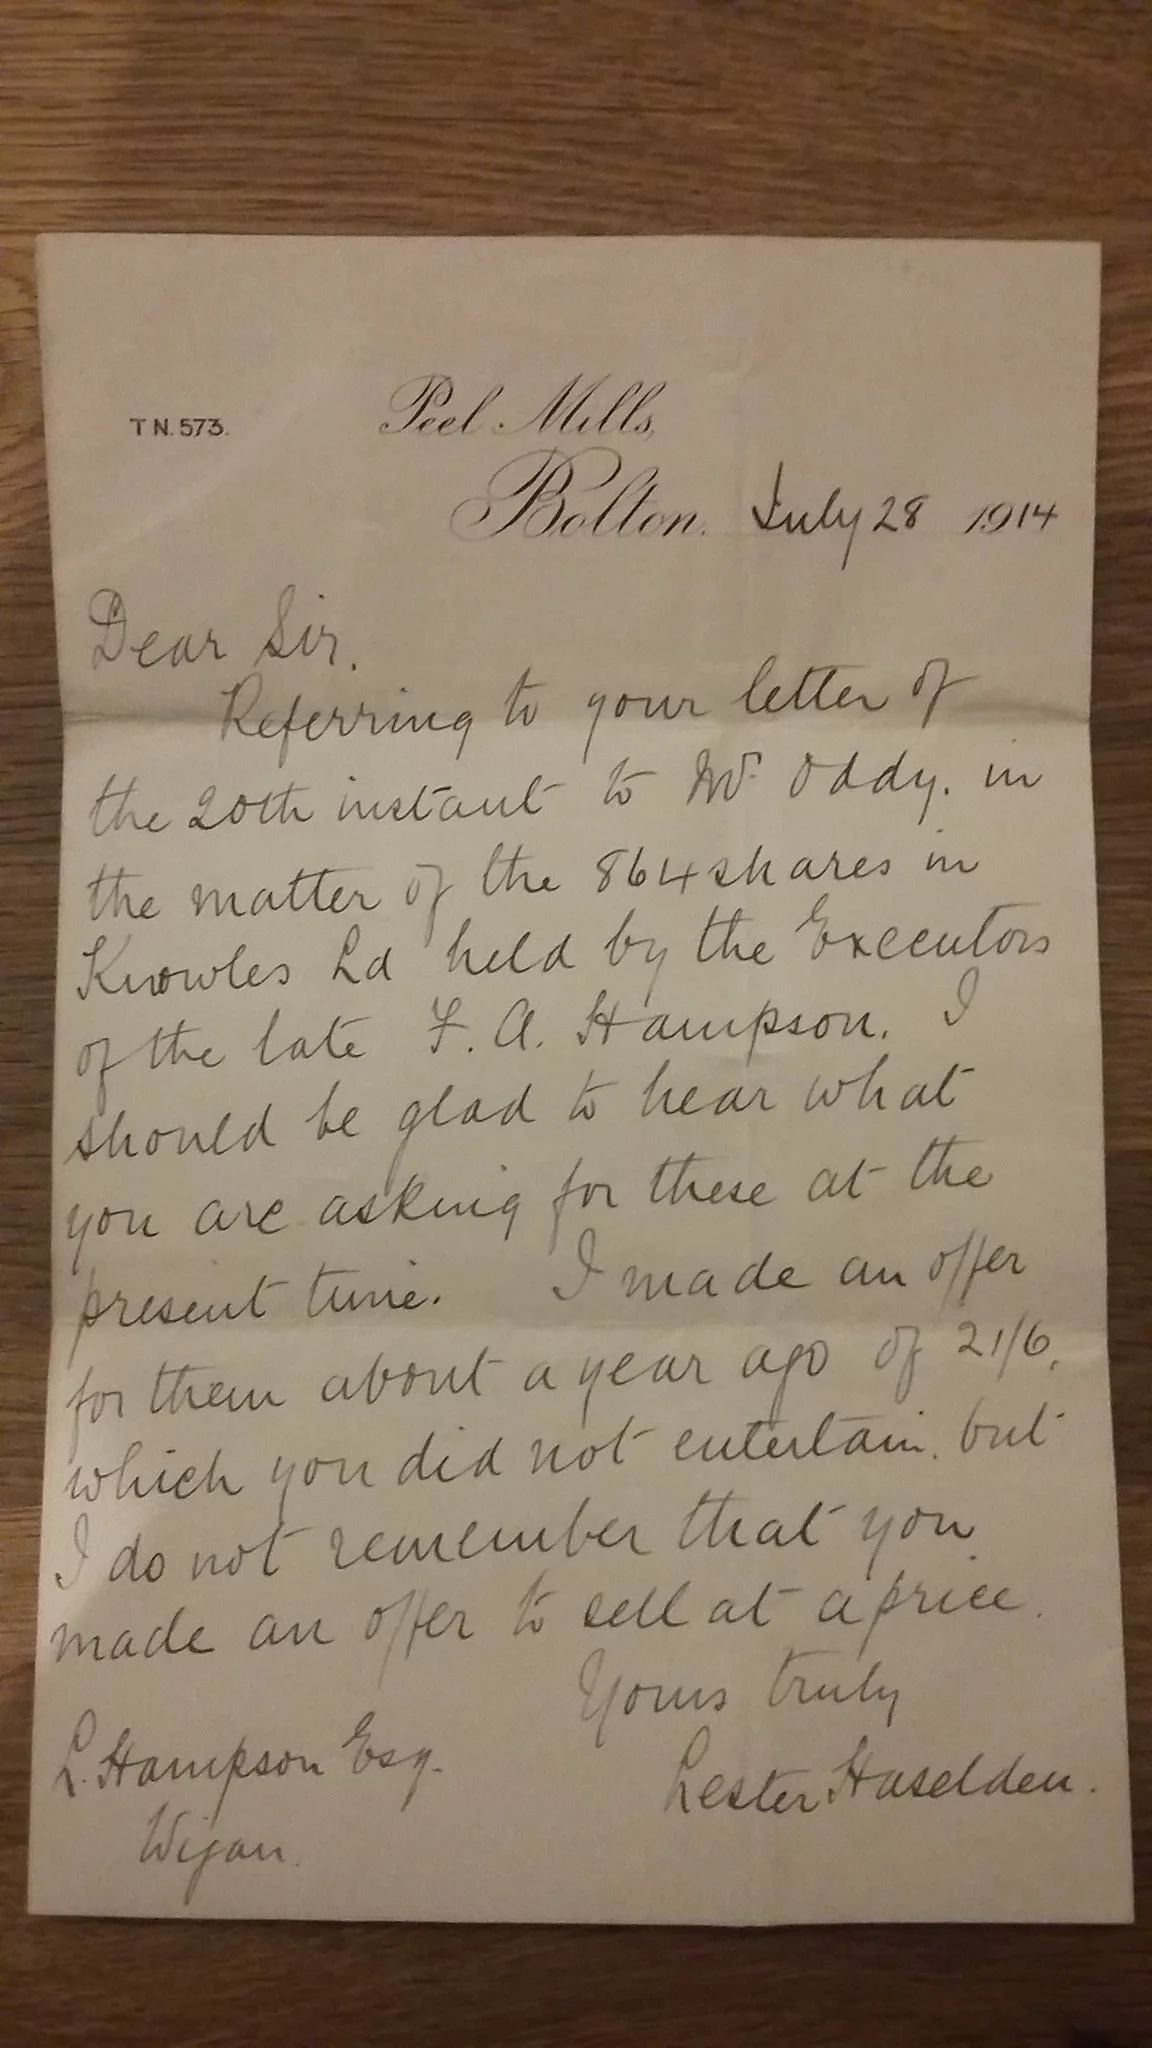 T N. 573.
Peel Mills,
Bolton. July 28 1914
Dear Sir.
Referring to your letter of
the 20th instant to Mr. Oddy. in
the matter of the 864 shares in
Knowles Ld held by the Executors
of the late F. A. Hampson. I
should be glad to hear what
you are asking for these at the
present time. I made an offer
for them about a year ago of 21/6,
which you did not entertain, but
I do not remember that you
made an offer to sell at a price.
Yours truly
Lester Haselden.
L. Hampson Esq.
Wigan.